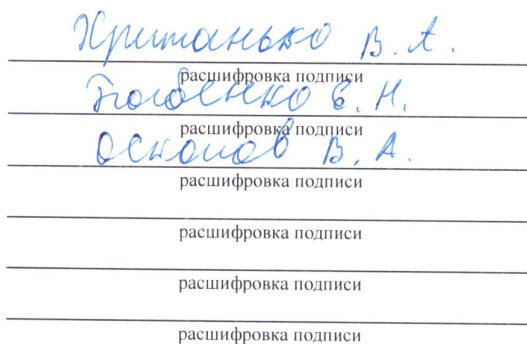 В. А.
расшифровка подписи
Е. Н.
расшифровка подписи
В. А.
расшифровка подписи
расшифровка подписи
расшифровка подписи
расшифровка подписи